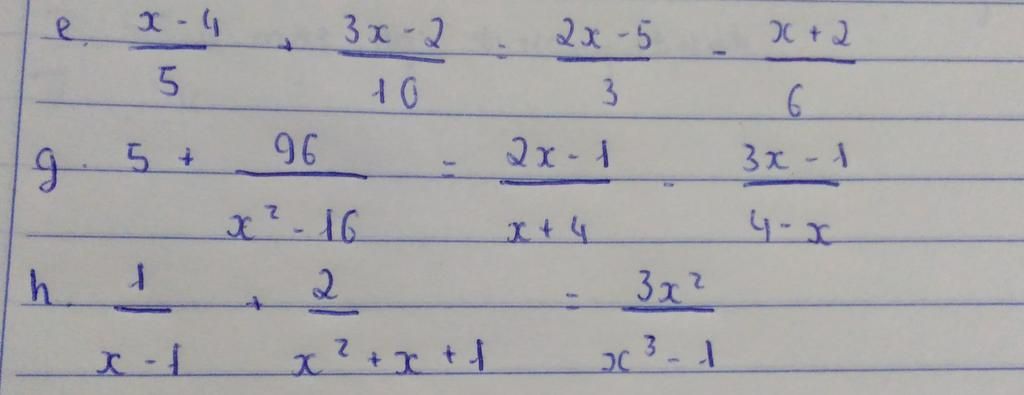 e. (x - 4)/5 + (3x - 2)/10 = (2x - 5)/3 - (x + 2)/6
g. 5 + 96/(x² - 16) = (2x - 1)/(x + 4) - (3x - 1)/(4 - x)
h. 1/(x - 1) + 2/(x² + x + 1) = 3x²/(x³ - 1)